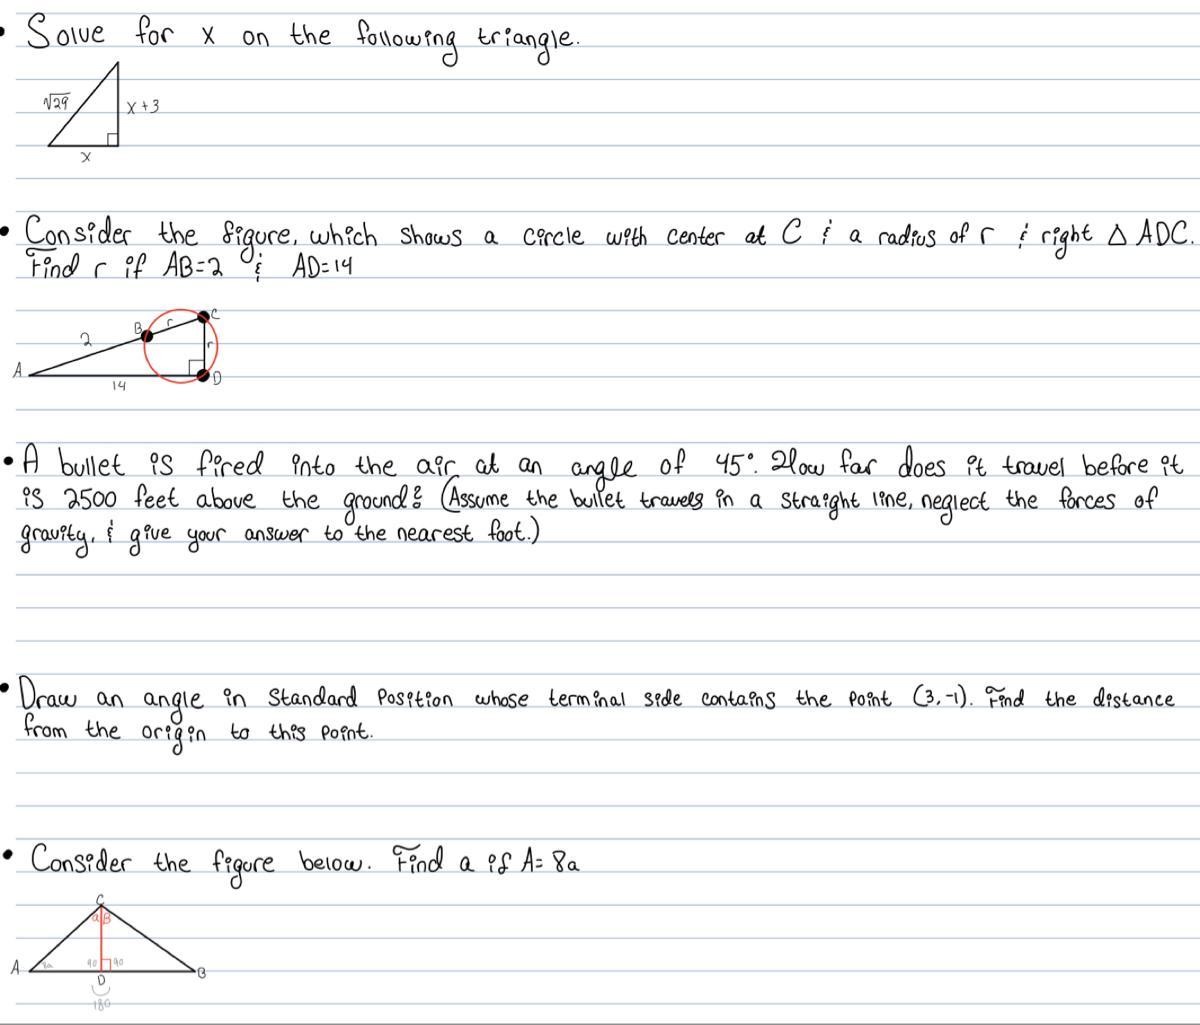 • Solve for x on the following triangle.
√29
x+3
x
• Consider the figure, which shows a circle with center at C & a radius of r & right △ ADC.
Find r if AB=2 & AD=14
C
B
r
2
r
A
D
14
• A bullet is fired into the air at an angle of 45°. How far does it travel before it
is 2500 feet above the ground? (Assume the bullet travels in a straight line, neglect the forces of
gravity, & give your answer to the nearest foot.)
• Draw an angle in Standard Position whose terminal side contains the point (3,-1). Find the distance
from the origin to this point.
• Consider the figure below. Find a if A= 8a
C
a B
A 8a 90 90 B
D
180